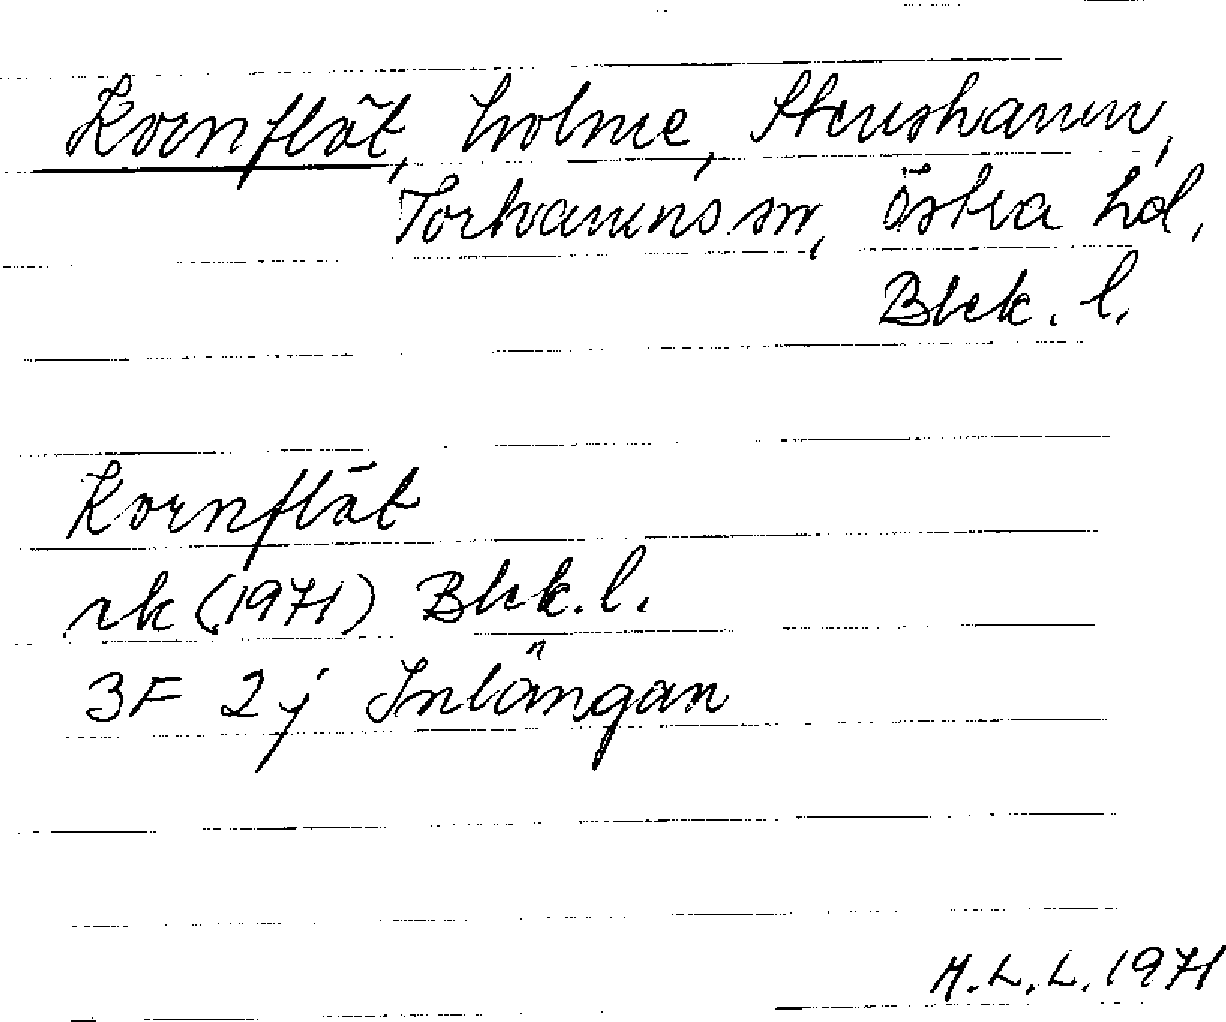 Kornflät, holme, Stenshamn,
Torhamns sn, Östra hd,
Blek. l.
Kornflät
rk (1971) Blek. l.
3F 2j Inlängan
M.L.L. 1971